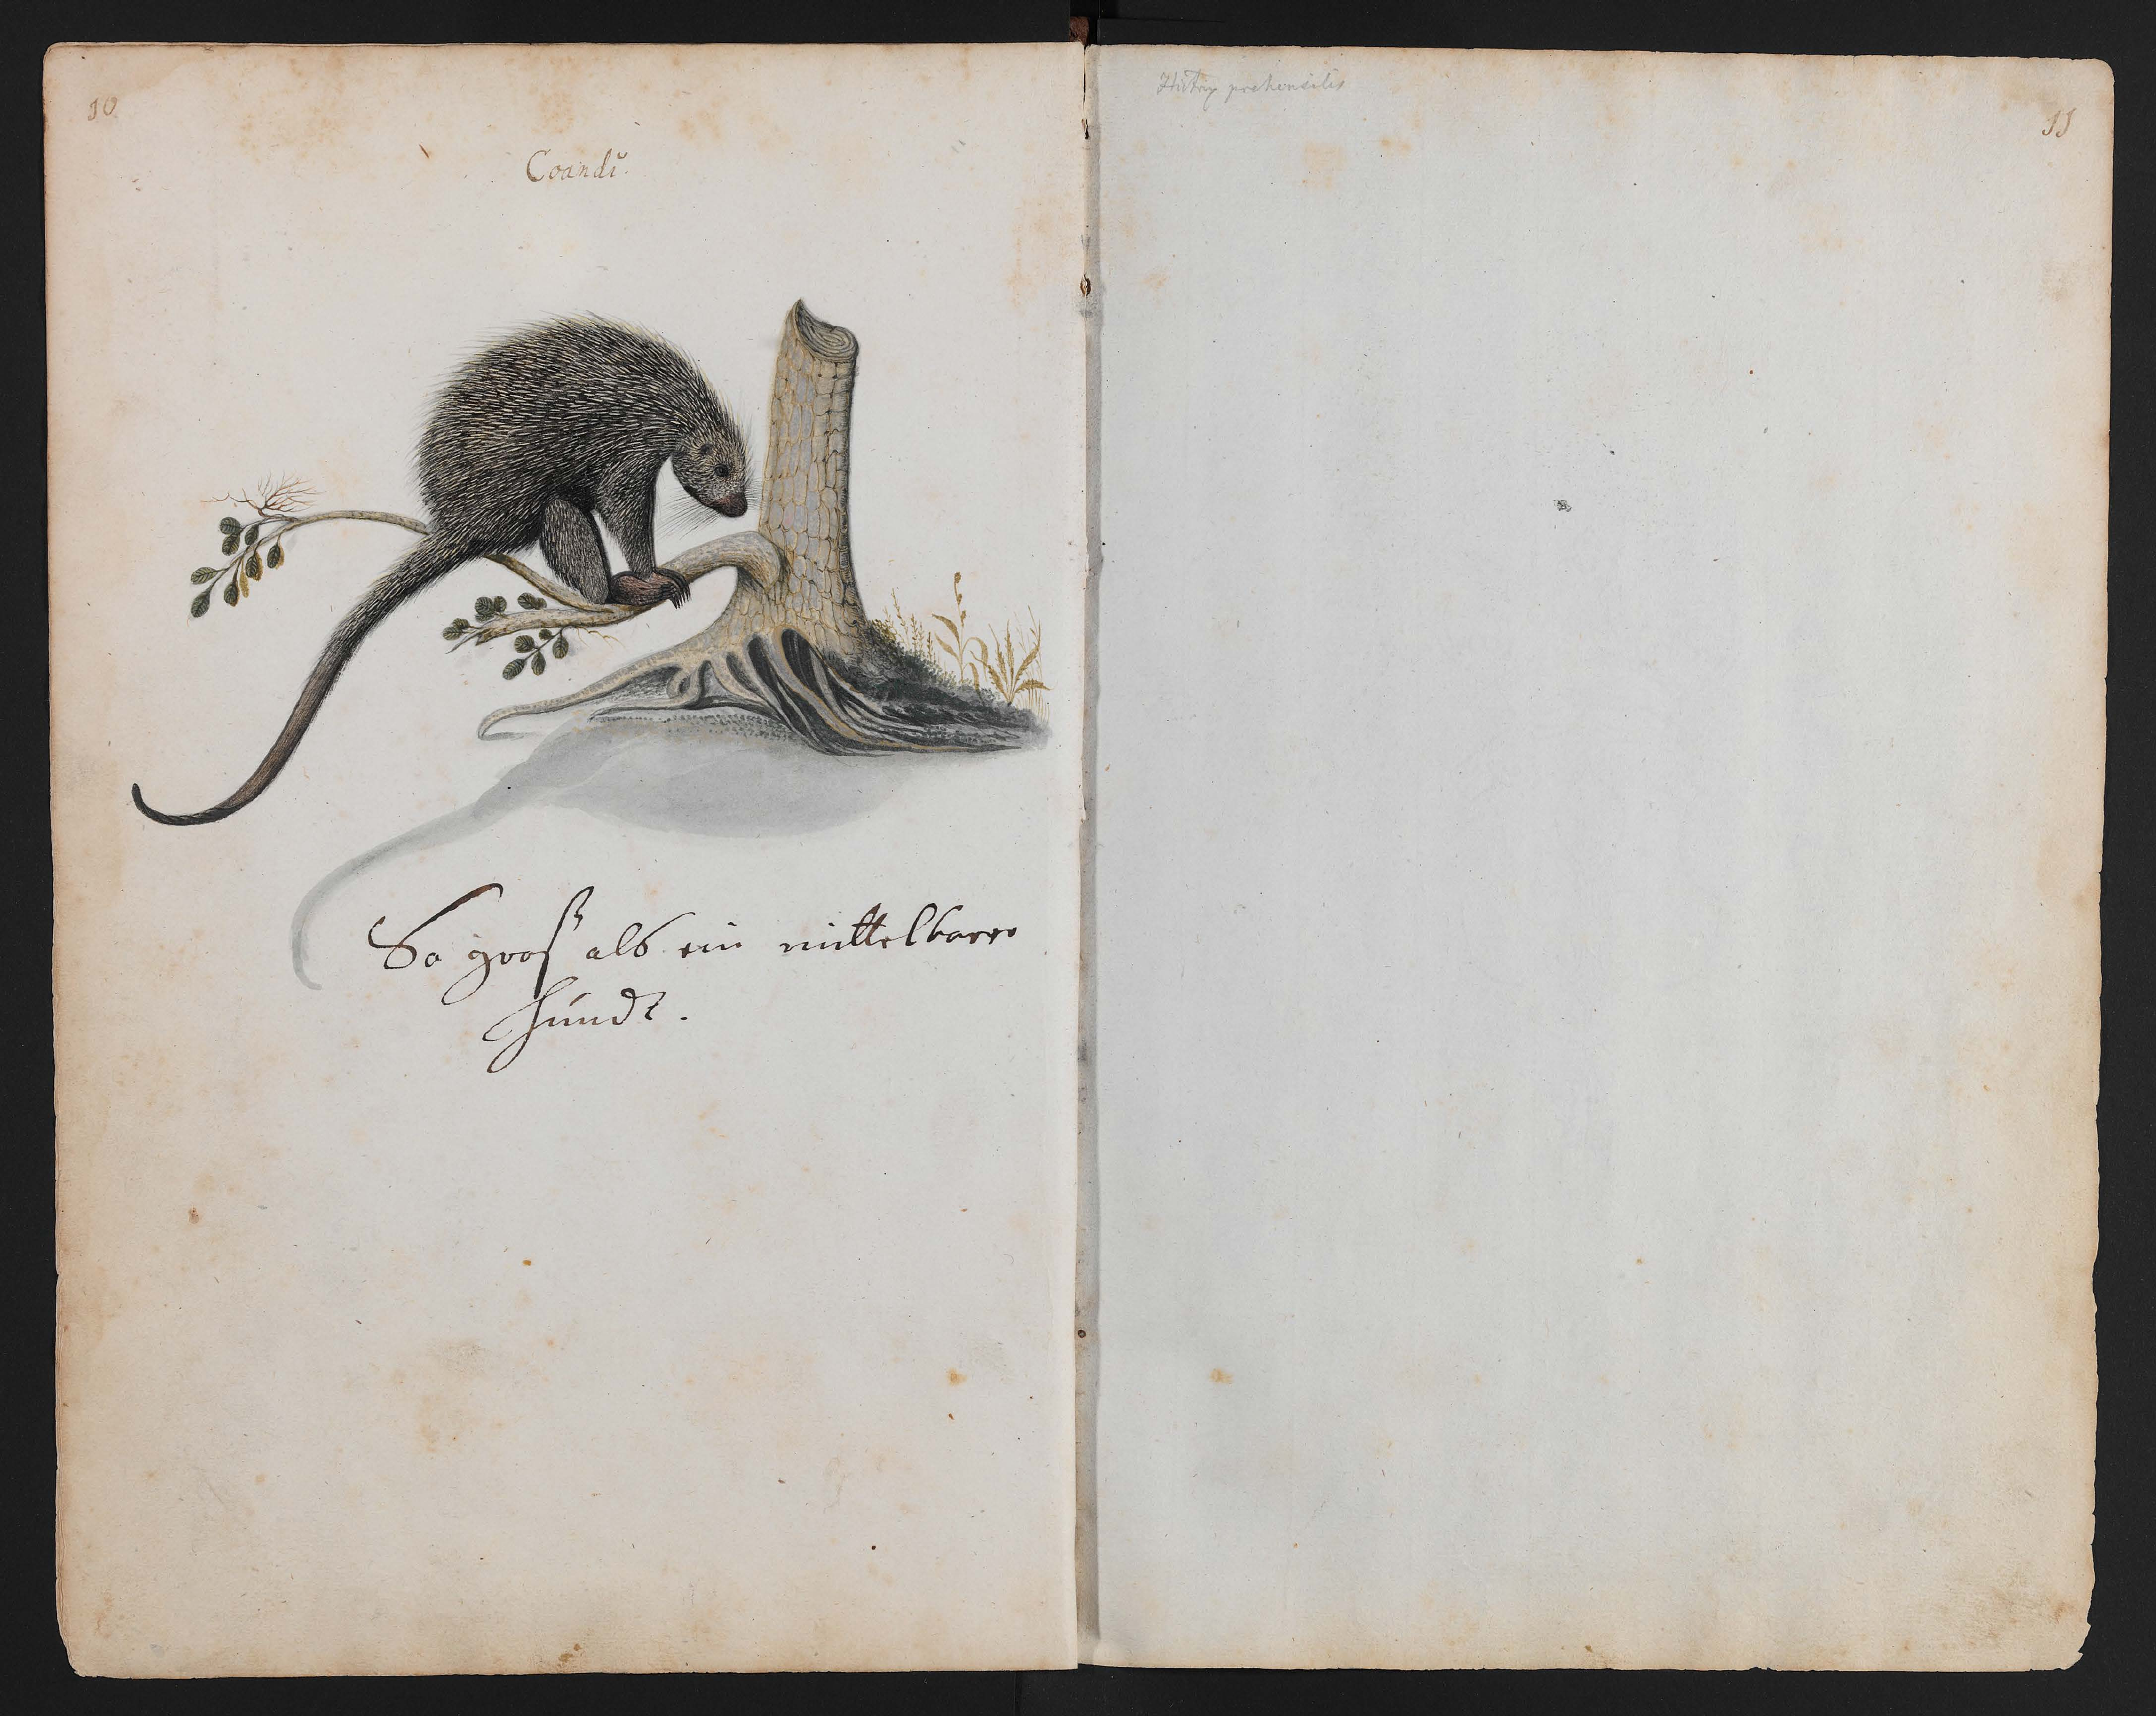 10
Coandú.
So groß als ein mittelbarer
Hundt.
Histrix prehensilis
11